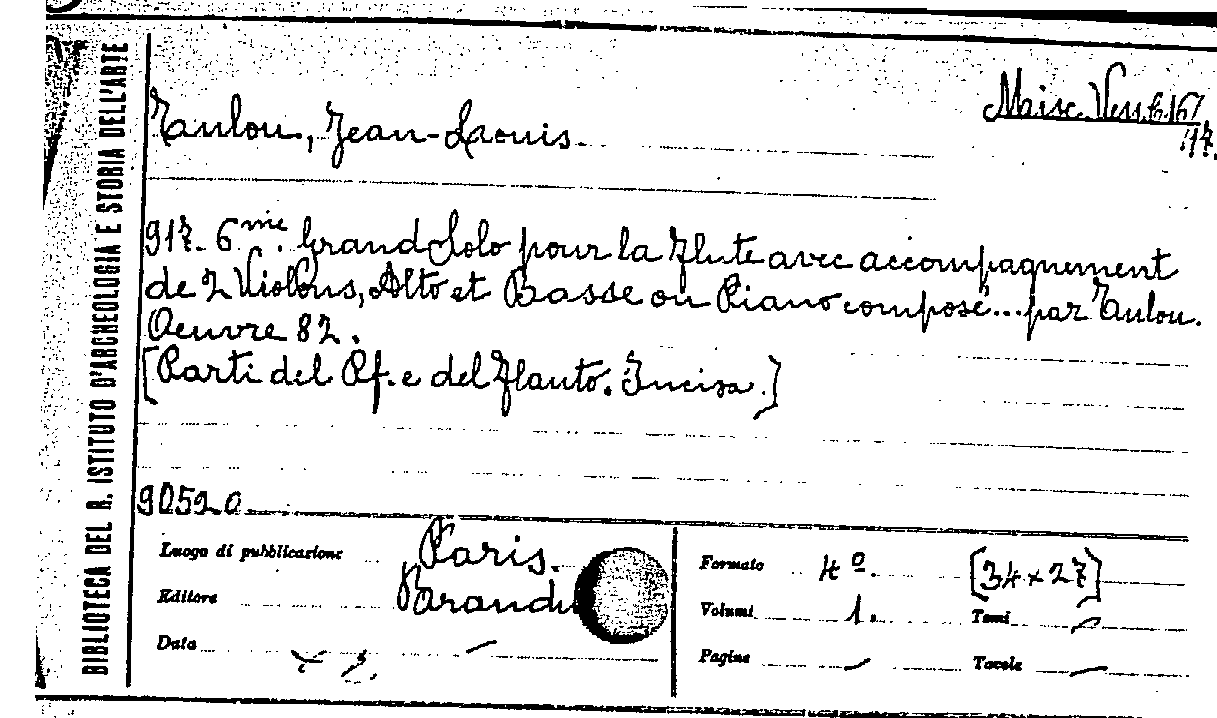 BIBLIOTECA DEL R. ISTITUTO D'ARCHEOLOGIA E STORIA DELL'ARTE
Misc. Vess.
Taulou, Jean-Louis.
917. 6me. Grand Solo pour la Flute avec accompagnement
de 2 Violons, Alto et Basse ou Piano composé... par Taulou.
Oeuvre 82.
[Parti del Pf. e del Flauto. Incisa.]
90520
Luogo di pubblicazione Paris.
Editore Brandu
Data –
Formato 4º. [34 x 27]
Volumi 1. Tomi –
Pagine – Tavole –